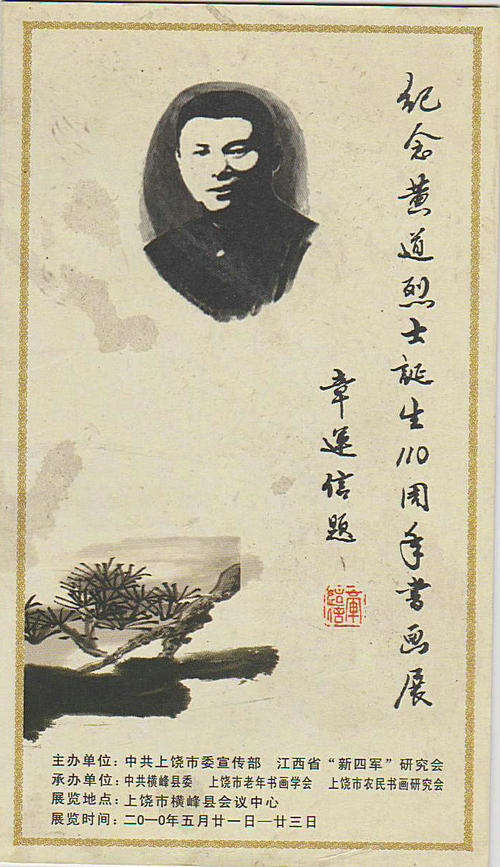 纪念黄道烈士誕生110周年书画展
章运信题
章运信
主办单位：中共上饶市委宣传部 江西省“新四军”研究会
承办单位：中共横峰县委 上饶市老年书画学会 上饶市农民书画研究会
展览地点：上饶市横峰县会议中心
展览时间：二0一0年五月廿一日—廿三日